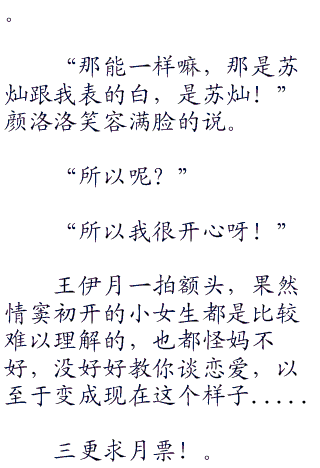 。
“那能一样嘛，那是苏
灿跟我表的白，是苏灿！”
颜洛洛笑容满脸的说。
“所以呢？”
“所以我很开心呀！”
王伊月一拍额头，果然
情窦初开的小女生都是比较
难以理解的，也都怪妈不
好，没好好教你谈恋爱，以
至于变成现在这个样子.....
三更求月票！。